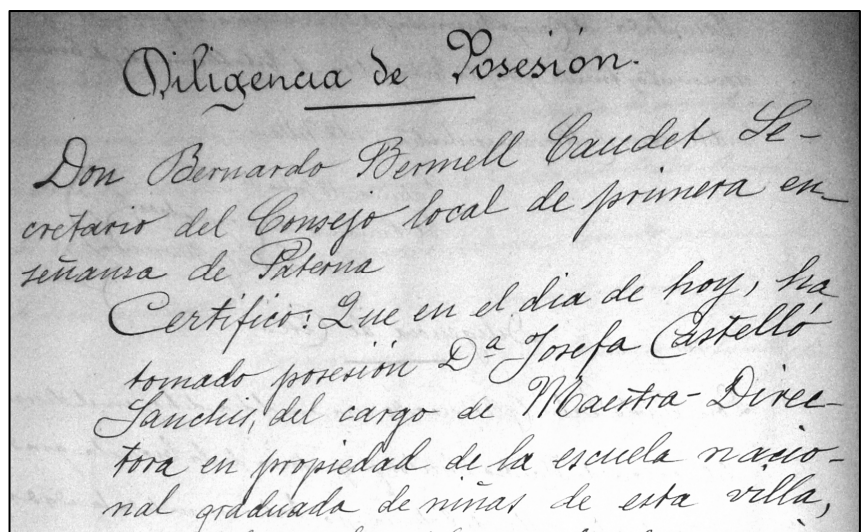 Diligencia de Posesión.
Don Bernardo Bermell Caudet Se-
cretario del Consejo local de primera en-
señanza de Paterna
Certifico: Que en el dia de hoy, ha
tomado posesión Dª Josefa Castelló
Sanchis, del cargo de Maestra-Direc-
tora en propiedad de la escuela nacio-
nal graduada de niñas de esta villa,